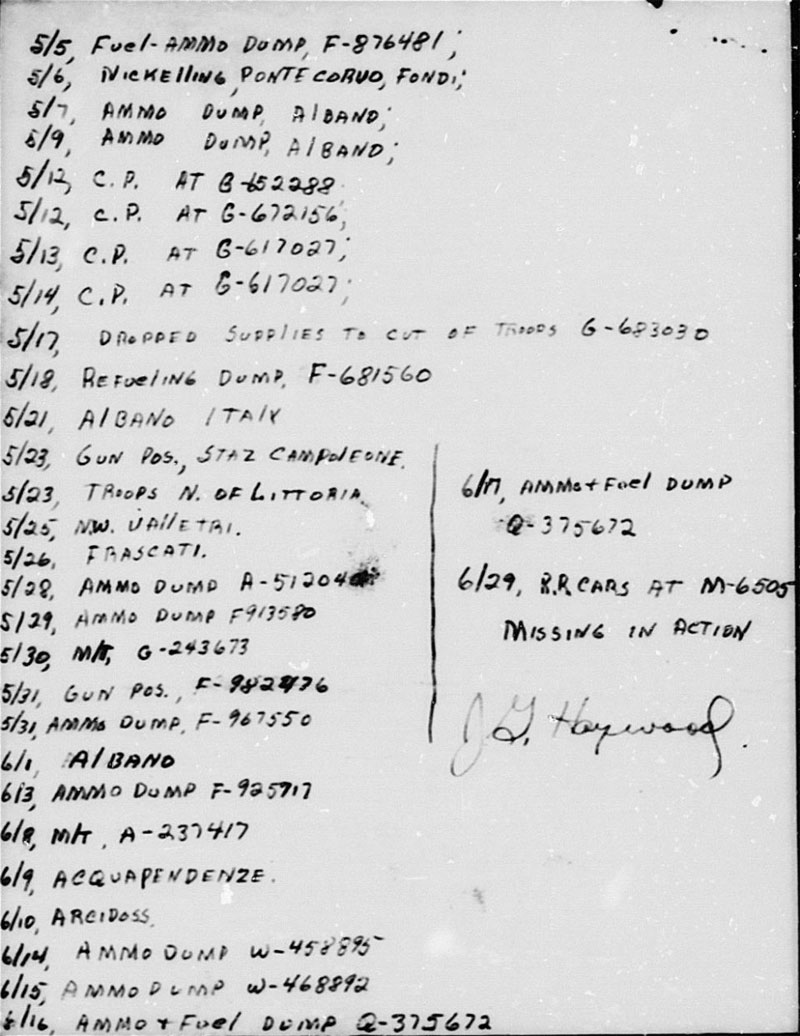 5/5, Fuel-AMMO DUMP, F-876481;
5/6, NICKElliNG, PONTECORVO, FONDI;
5/7, AMMO DUMP, AlBANO;
5/9, AMMO DUMP, AlBANO;
5/12, C.P. AT G-652288
5/12, C.P. AT G-672156;
5/13, C.P. AT G-617027;
5/14, C.P. AT G-617027;
5/17, DROPPED SUPPlIES TO CUT OF TROOPS G-683030
5/18, REFUElING DUMP, F-681560
5/21, AlBANO ITAlY
5/23, GUN POS., STAZ CAMPOlEONE.
5/23, TROOPS N. OF LITTORIA
5/25, N.W. VAllETRI.
5/26, FRASCATI.
5/28, AMMO DUMP A-512040
5/29, AMMO DUMP F913580
5/30, M/T, G-243673
5/31, GUN POS., F-982476
5/31, AMMO DUMP, F-967550
6/1, AlBANO
6/3, AMMO DUMP F-925717
6/8, M/T, A-237417
6/9, ACQUAPENDENZE.
6/10, ARCIDOSS.
6/14, AMMO DUMP W-458895
6/15, AMMO DUMP W-468892
6/16, AMMO + Fuel DUMP Q-375672
6/17, AMMO + Fuel DUMP
Q-375672
6/29, R.R CARS AT M-6505
MISSING IN ACTION
J.G. Haywood.